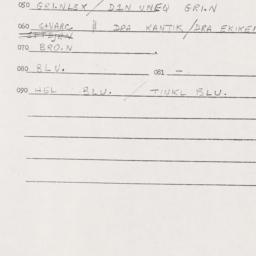 050 GRI.NLEX / DIN UNEQ GRI.N
060 S.VARC. // DRA KANTIK / DRA EKIKE
070 BRO.N
080 BLU. 081 -
090 HEL BLU. / TINKL BLU.